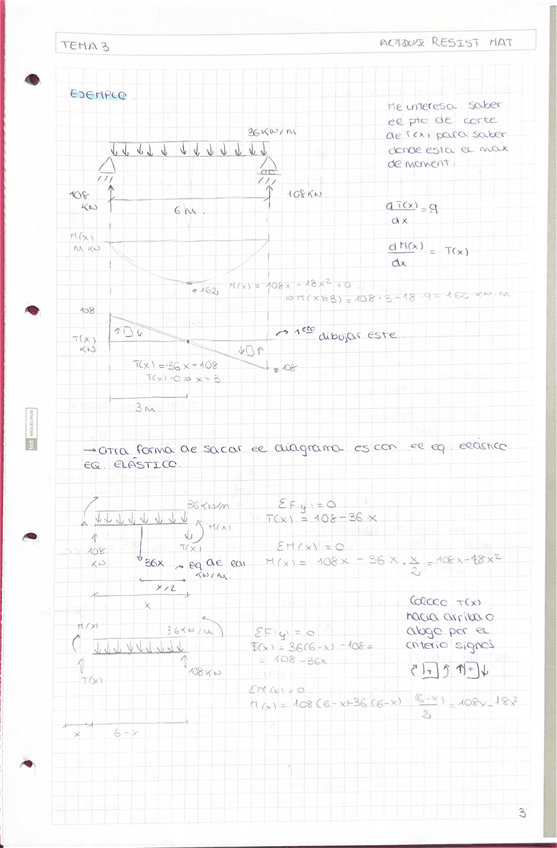 TEMA 3
RESIST MAT
EJEMPLO
Me interesa saber
el pto de corte
de T(x) para saber
donde esta el max
de moment.
36 KN/m
108
KN
108 KN
6 M.
dT(x)/dx = q
dM(x)/dx = T(x)
M(x)
M KN
+162
M(x) = 108x - 18x² = 0
M(x=3) = 108·3 - 18·9 = 162 KN·M
108
T(x)
KN
→ 1ero dibujar este
108
T(x) = -36x + 108
T(x) = 0 ⇒ x = 3
3 M
→ Otra forma de sacar el diagrama es con el eq. elástico.
EQ. ELÁSTICO
36 KN/m
A
M(x)
T(x)
108
KN
36x → eq de
KN/M
x/2
x
ΣF(y) = 0
T(x) = 108 - 36x
ΣM(x) = 0
M(x) = 108x - 36x · x/2 = 108x - 18x²
Coloco T(x)
hacia arriba o
abajo por el
criterio signos
+ +
M(x)
36 KN/M
T(x)
108 KN
x 6-x
ΣF(y) = 0
T(x) = 36(6-x) - 108 =
= 108 - 36x
ΣM(x) = 0
M(x) = 108(6-x) - 36(6-x) (6-x)/2 = 108x - 18x²
3